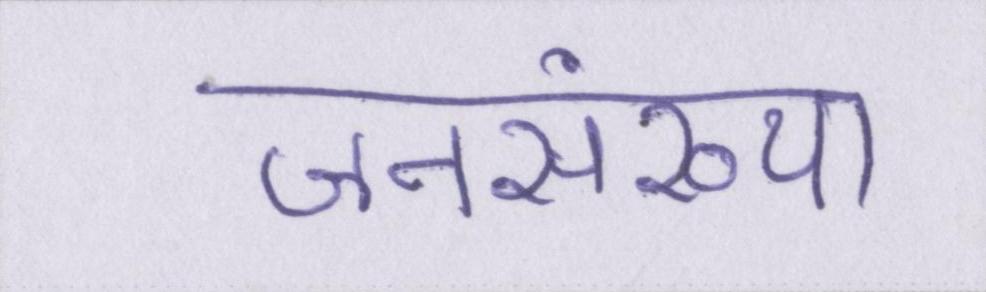 जनसंख्या